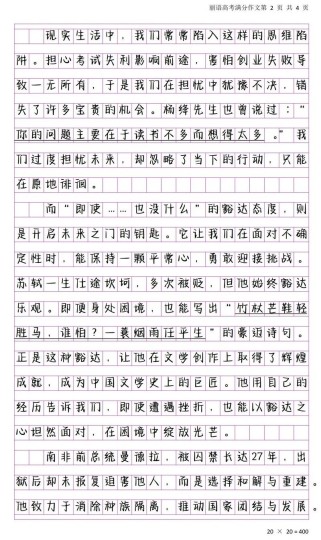 丽语高考满分作文第 2 页 共 4 页
现实生活中，我们常常陷入这样的思维陷
阱。担心考试失利影响前途，害怕创业失败导
致一无所有，于是我们在担忧中犹豫不决，错
失了许多宝贵的机会。杨绛先生也曾说过：“
你的问题主要在于读书不多而想得太多。”我
们过度担忧未来，却忽略了当下的行动，只能
在原地徘徊。
而“即使……也没什么”的豁达态度，则
是开启未来之门的钥匙。它让我们在面对不确
定性时，能保持一颗平常心，勇敢迎接挑战。
苏轼一生仕途坎坷，多次被贬，但他始终豁达
乐观。即便身处困境，也能写出“竹杖芒鞋轻
胜马，谁怕？一蓑烟雨任平生”的豪迈诗句。
正是这种豁达，让他在文学创作上取得了辉煌
成就，成为中国文学史上的巨匠。他用自己的
经历告诉我们，即便遭遇挫折，也能以豁达之
心坦然面对，在困境中绽放光芒。
南非前总统曼德拉，被囚禁长达27年，出
狱后却未报复迫害他人，而是选择和解与重建。
他致力于消除种族隔离，推动国家团结与发展。
20 × 20 = 400